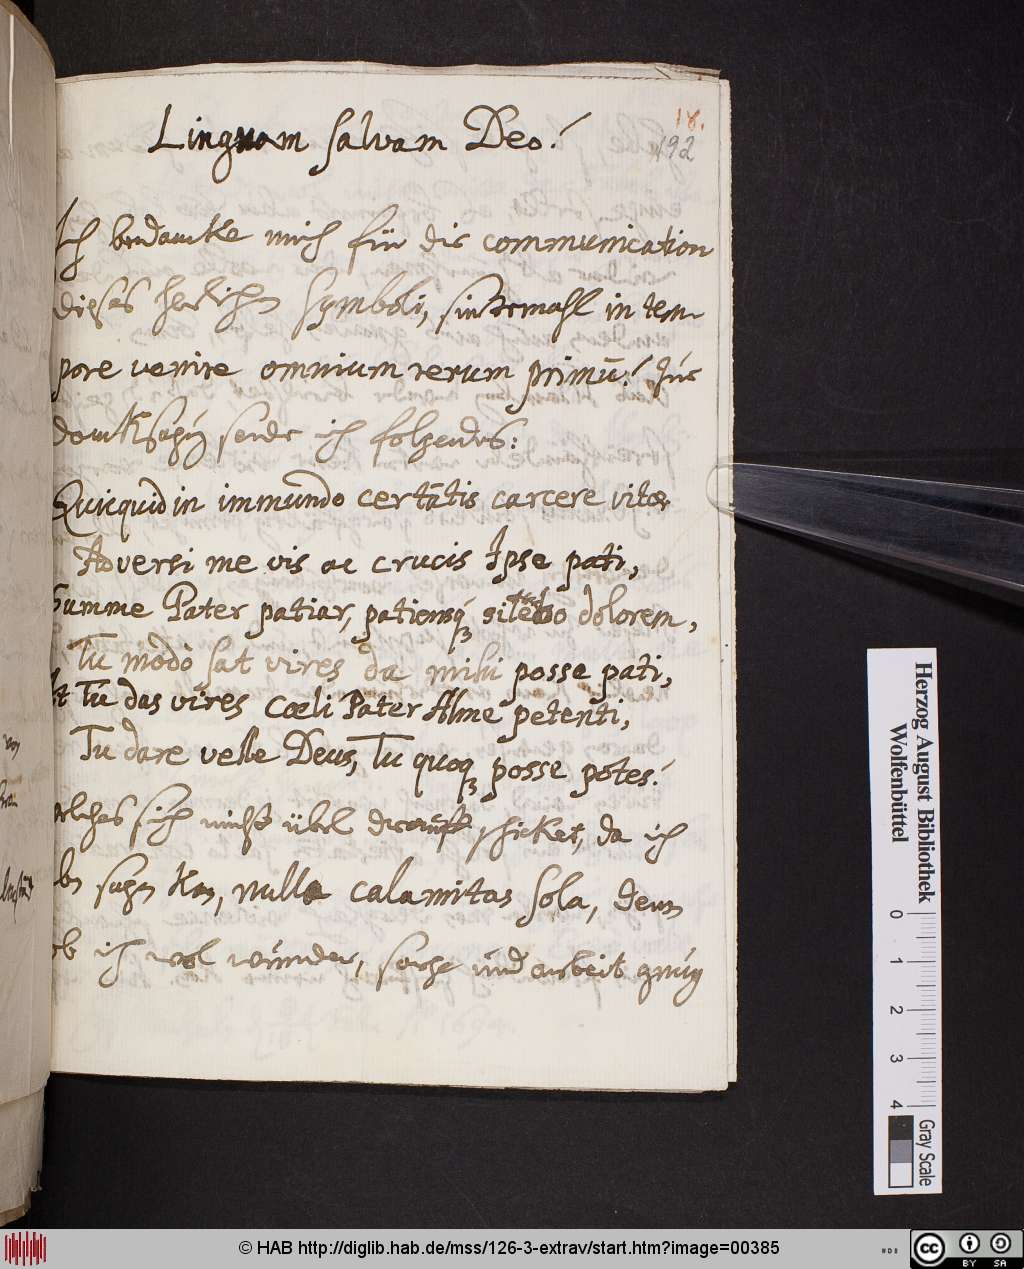 Linguam salvam Deo!
18.
192
Ich bedancke mich für die communication
dieses herlichen Symboli, sintemahl in tem-
pore venire omnium rerum primū! Zur
dancksagūg sende ich folgendes:
Quicquid in immundo certātis carcere vitae
Adversi me vis ac crucis Ipse pati,
Summe Pater patiar, patiensq́ȝ dolorem,
Tu modò sat vires da mihi posse pati,
At Tu das vires coeli Pater Alme petenti,
Tu dare velle Deus, Tu quoqȝ posse potes!
welches sich nicht übel darauff schicket, da ich
sagen kan, nulla calamitas sola, denn
ob ich wol, sorge und arbeit gnug
Herzog August Bibliothek
Wolfenbüttel
0 1 2 3 4
Gray Scale
© HAB http://diglib.hab.de/mss/126-3-extrav/start.htm?image=00385
cc BY SA